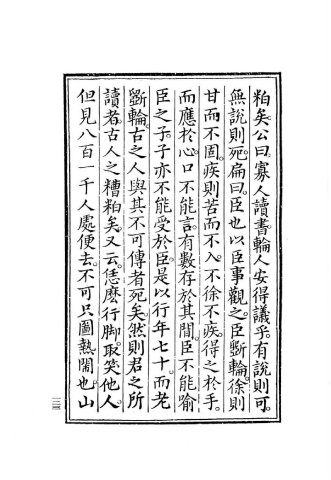 粕矣。公曰。寡人讀書。輪人安得議乎。有說則可。
無說則死。扁曰。臣也以臣事觀之。臣斵輪。徐則
甘而不固。疾則苦而不入。不徐不疾。得之於手。
而應於心。口不能言。有數存於其間。臣不能喻
臣之子。子亦不能受於臣。是以行年七十。而老
斵輪。古之人與其不可傳者死矣。然則君之所
讀者。古人之糟粕矣。又云。恁麼行脚。取笑他人。
但見八百一千人處便去。不可只圖熱閙也。山
三三